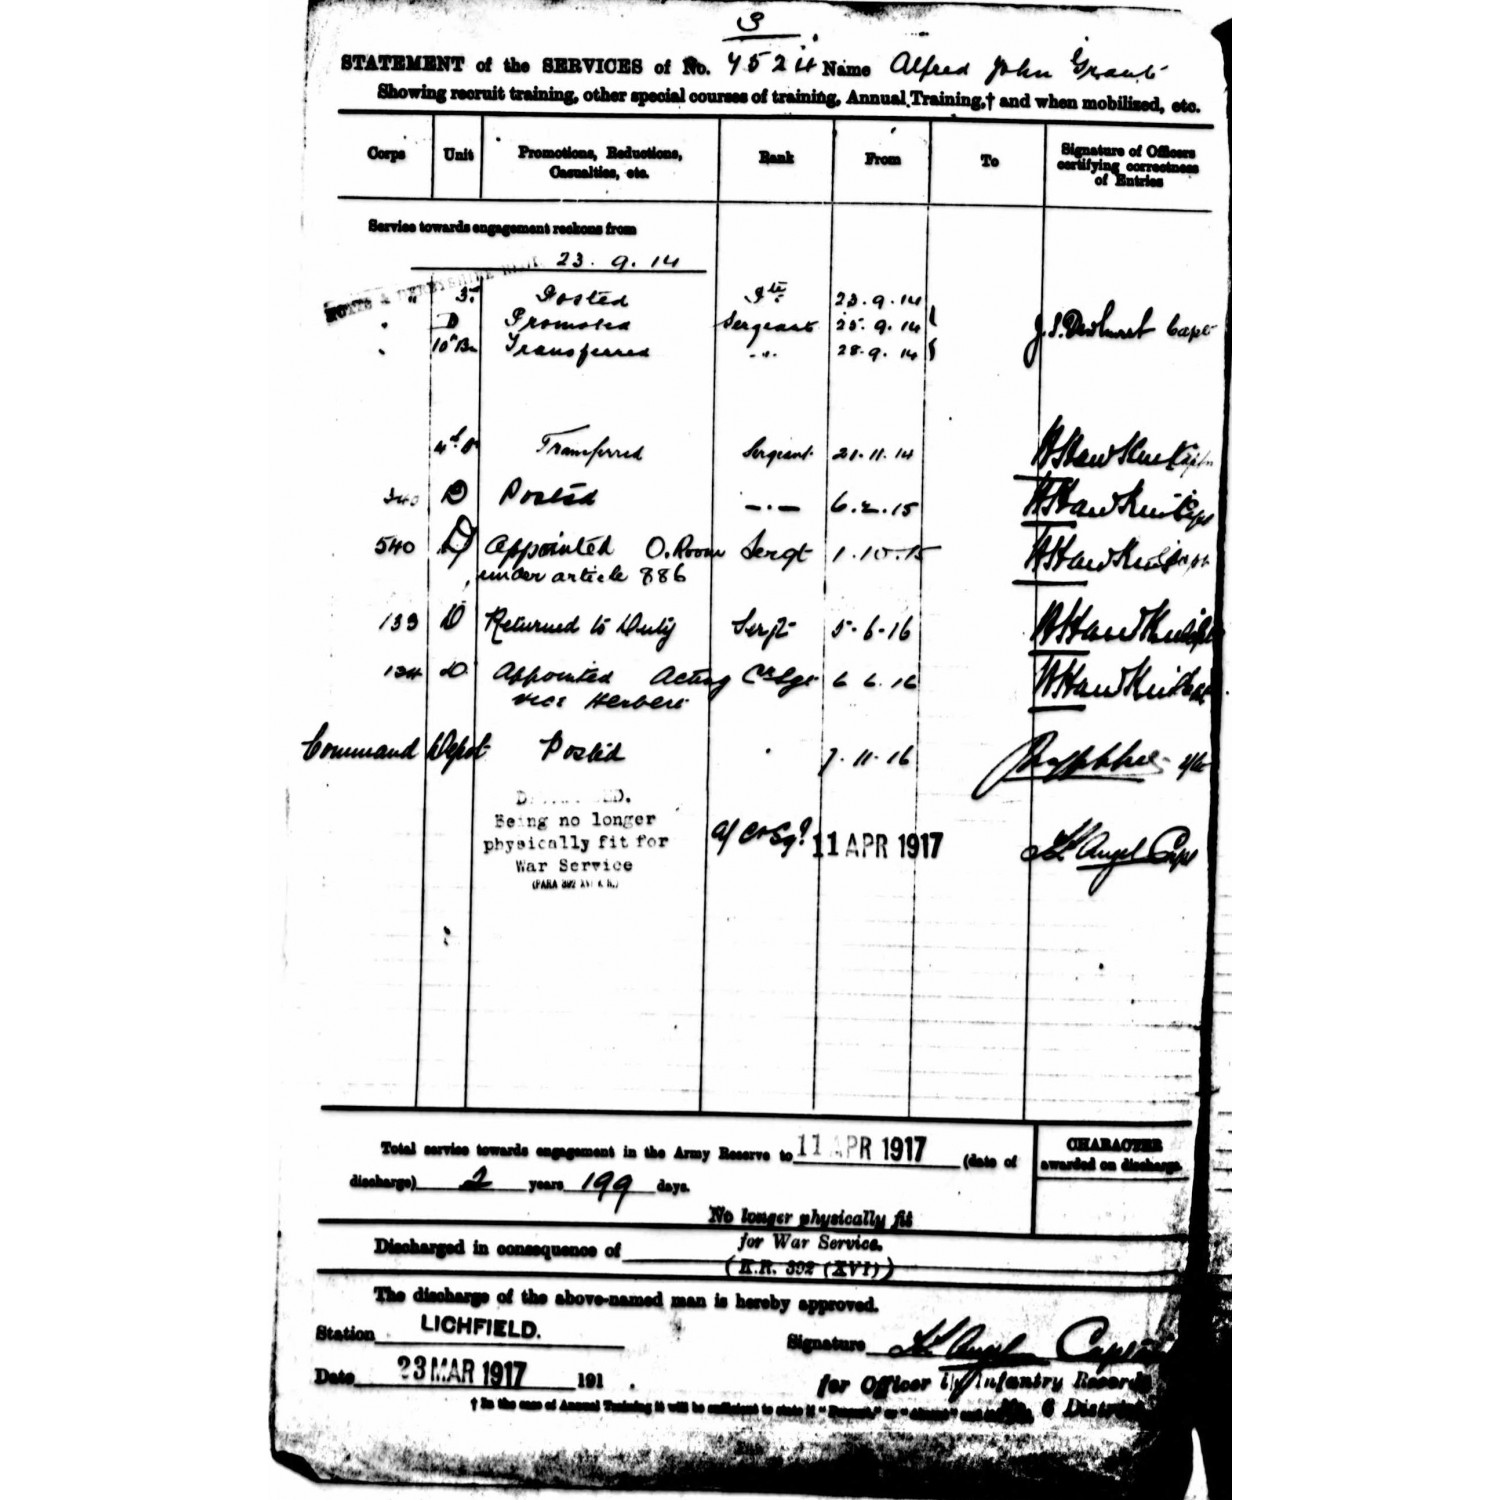 3
STATEMENT of the SERVICES of No. 4524 Name Alfred John Grant
Showing recruit training, other special courses of training, Annual Training,† and when mobilized, etc.
Corps Unit Promotions, Reductions, Casualties, etc. Rank From To Signature of Officers certifying correctness of Entries
Service towards engagement reckons from
23. 9. 14
NOTTS & DERBYSHIRE
" 3. Posted Pte 23.9.14
D Promoted Sergeant 25.9.14 J.S. Dewhurst Capt
10th Bn Transferred -"- 28.9.14
4th Transferred Sergeant 21.11.14 Capt
340 D Posted -"- 6.2.15 Capt
540 D Appointed O. Room Sergt 1.10.15
under article 886
139 D Returned to Duty Sergt 5-6-16
134 D Appointed Acting Cr Sgt 6 6.16
vice Herbert
Command Depot Posted 7.11.16
Being no longer
physically fit for
War Service
(PARA 392 XVI K.R.)
a/ Cr Sgt 11 APR 1917 Angel Capt
Total service towards engagement in the Army Reserve to 11 APR 1917 (date of
discharge) 2 years 199 days.
CHARACTER
awarded on discharge
No longer physically fit
Discharged in consequence of for War Service.
(K.R. 392 (XVI))
The discharge of the above-named man is hereby approved.
Station LICHFIELD.
Signature Angel Captn
Date 23 MAR 1917 191 .
for Officer i/c Infantry Records
No. 6 District
† In the case of Annual Training it will be sufficient to state if "Present" or "Absent"